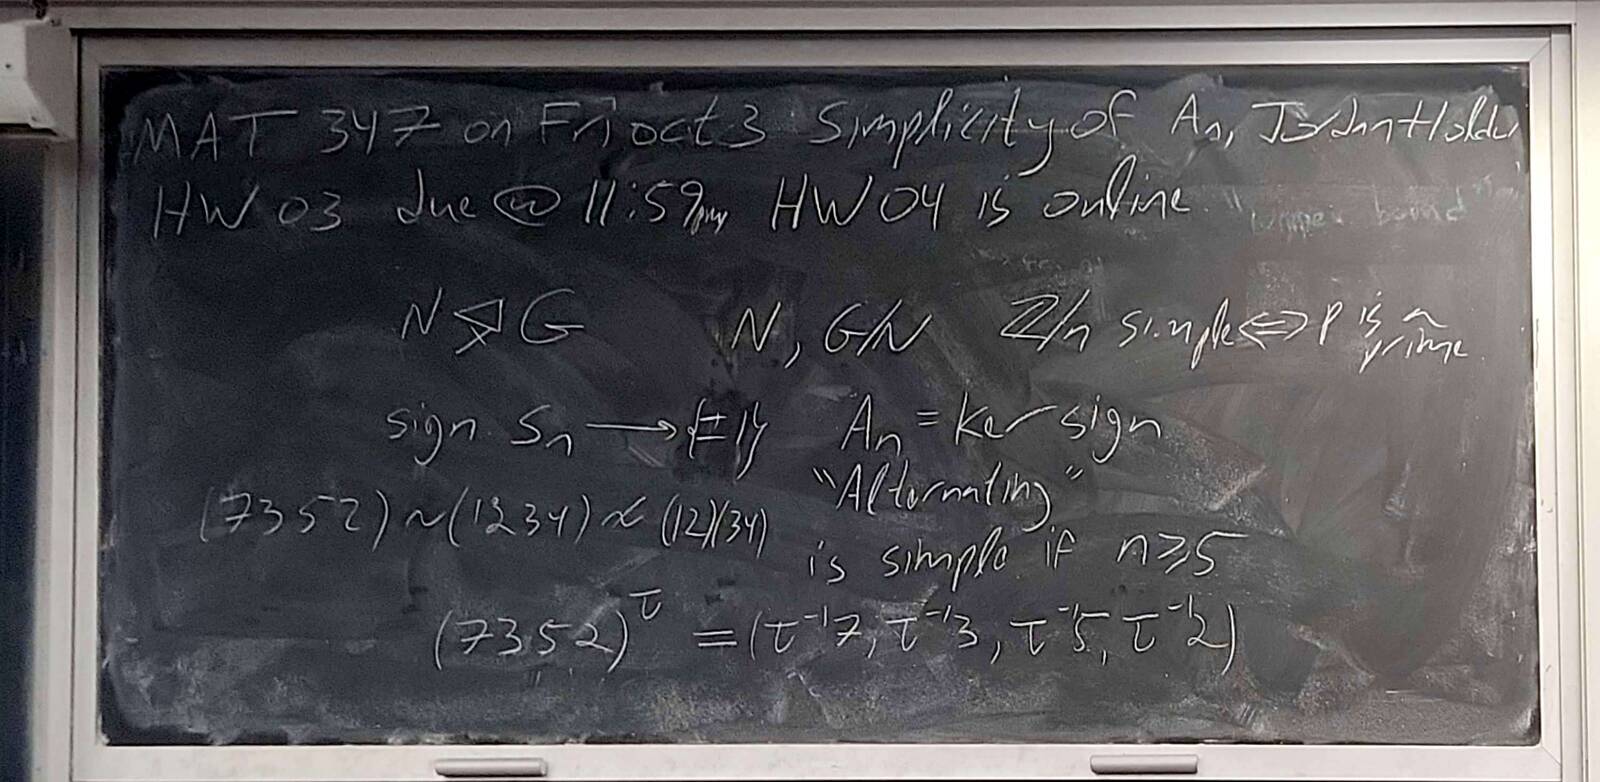 MAT 347 on Fri Oct 3 Simplicity of Aₙ, Jordan Holder
HW 03 due @ 11:59pm HW 04 is online. "upper bound"
N ⊲ G N, G/N ℤ/n simple ⟺ P is a prime.
sign: Sₙ ⟶ {±1} Aₙ = ker sign
"Alternating"
(7352) ~ (1234) ≁ (12)(34)
is simple if n ≥ 5
(7352)^τ = (τ⁻¹7, τ⁻¹3, τ⁻¹5, τ⁻¹2)